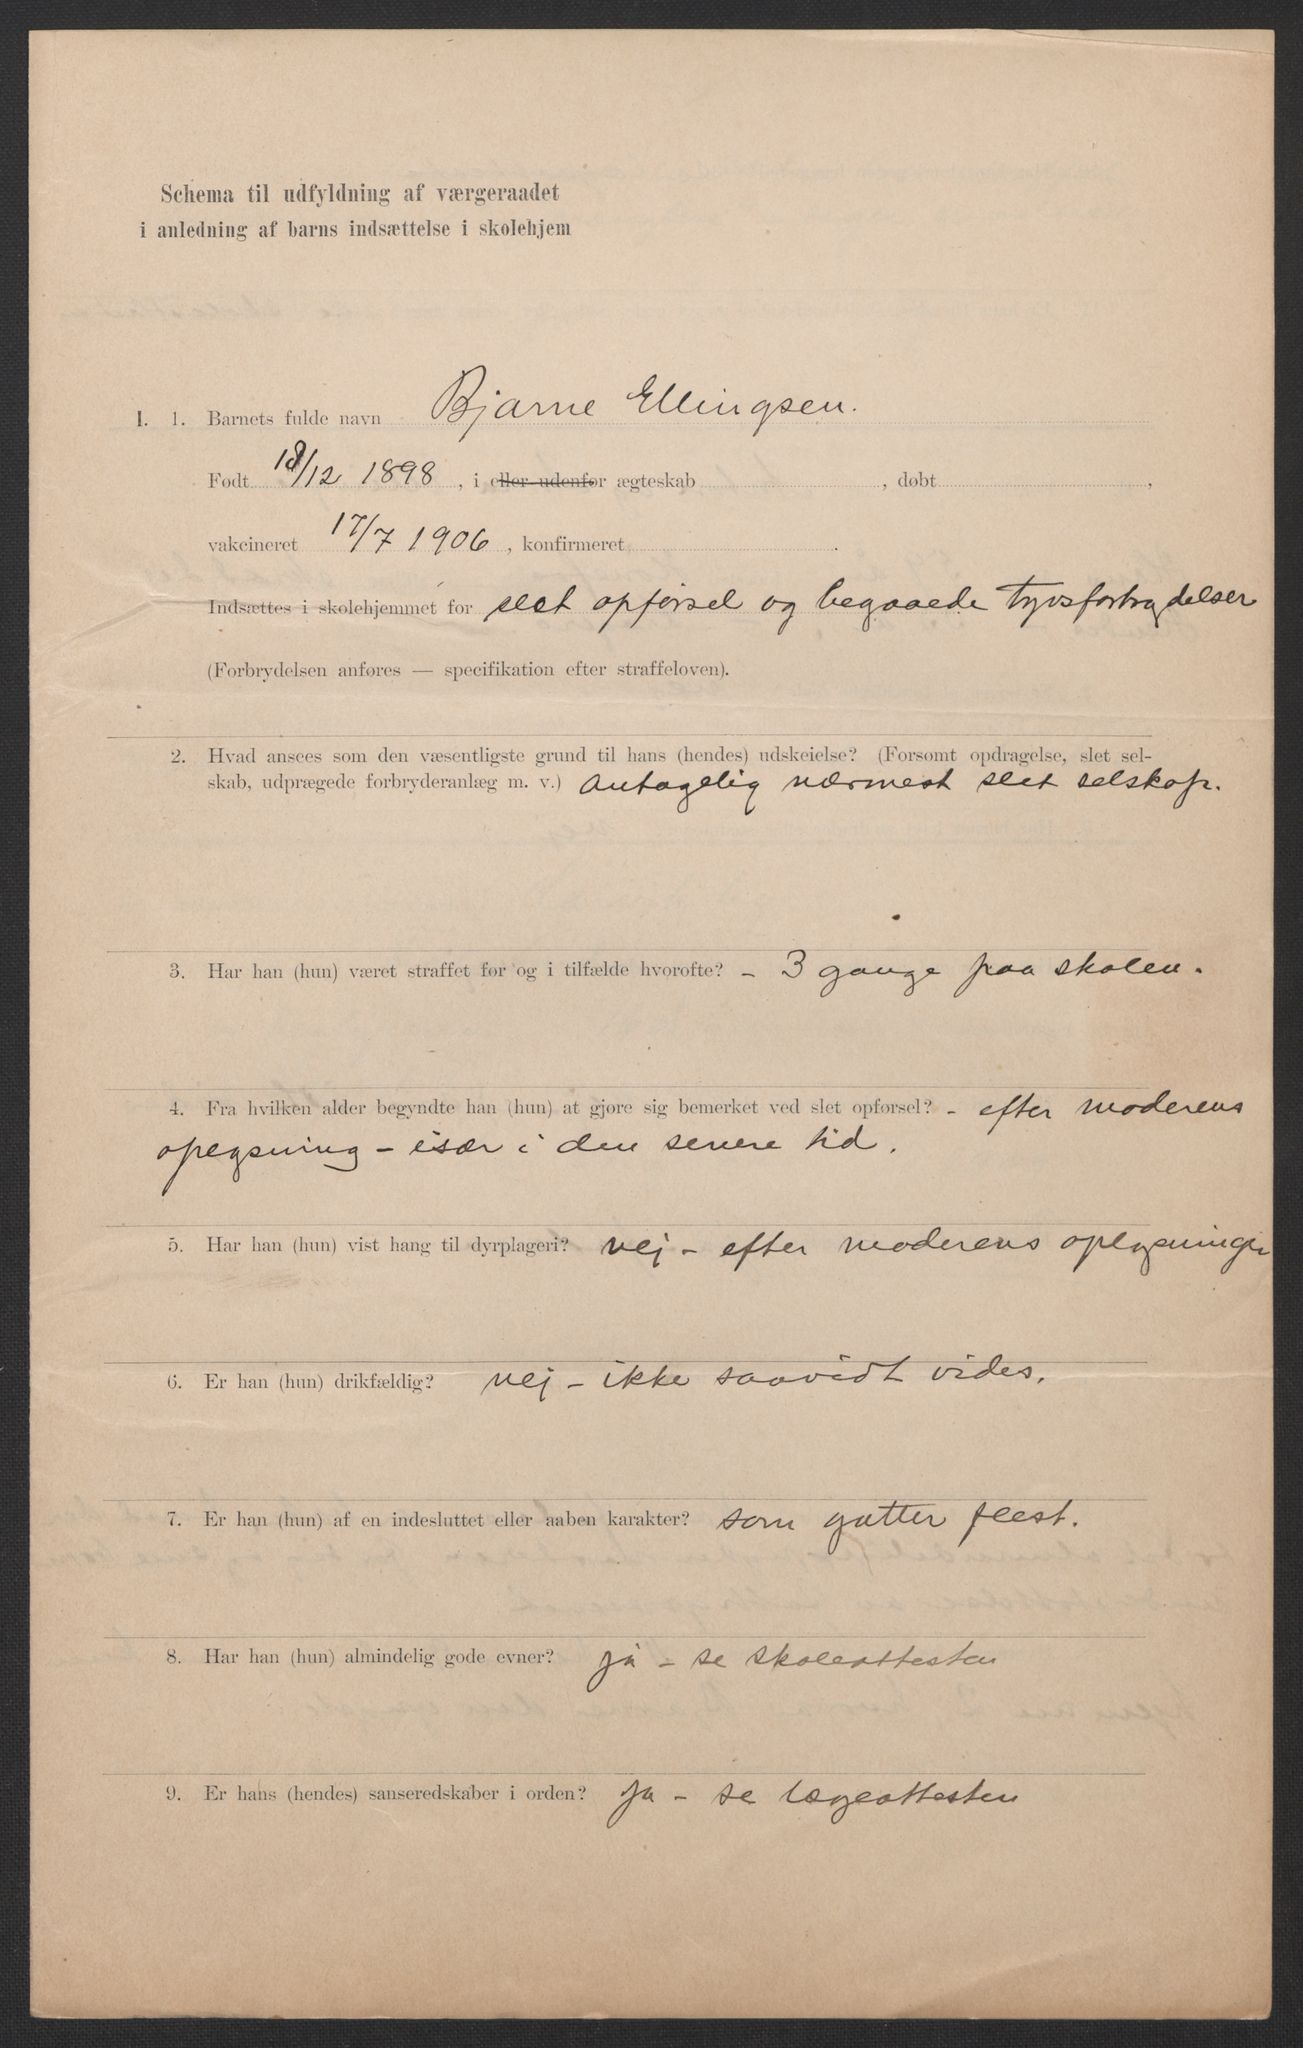 Schema til udfyldning af værgeraadet
i anledning af barns indsættelse i skolehjem
I. 1. Barnets fulde navn Bjarne Ellingsen.
Født 18/12 1898, i eller udenfor ægteskab , døbt ,
vakcineret 17/7 1906, konfirmeret .
Indsættes i skolehjemmet for slet opførsel og begaaede tyvsforbrydelser
(Forbrydelsen anføres — specifikation efter straffeloven).
2. Hvad ansees som den væsentligste grund til hans (hendes) udskeielse? (Forsomt opdragelse, slet sel-
skab, udprægede forbryderanlæg m. v.) Antagelig nærmest slet selskap.
3. Har han (hun) været straffet før og i tilfælde hvorofte? – 3 gange paa skolen.
4. Fra hvilken alder begyndte han (hun) at gjøre sig bemerket ved slet opførsel? – efter moderens
oplysning – især i den senere tid.
5. Har han (hun) vist hang til dyrplageri? nej – efter moderens oplysninger
6. Er han (hun) drikfældig? nej – ikke saavidt vides.
7. Er han (hun) af en indesluttet eller aaben karakter? som gutter flest.
8. Har han (hun) almindelig gode evner? ja – se skoleattesten
9. Er hans (hendes) sanseredskaber i orden? ja – se lægeattesten